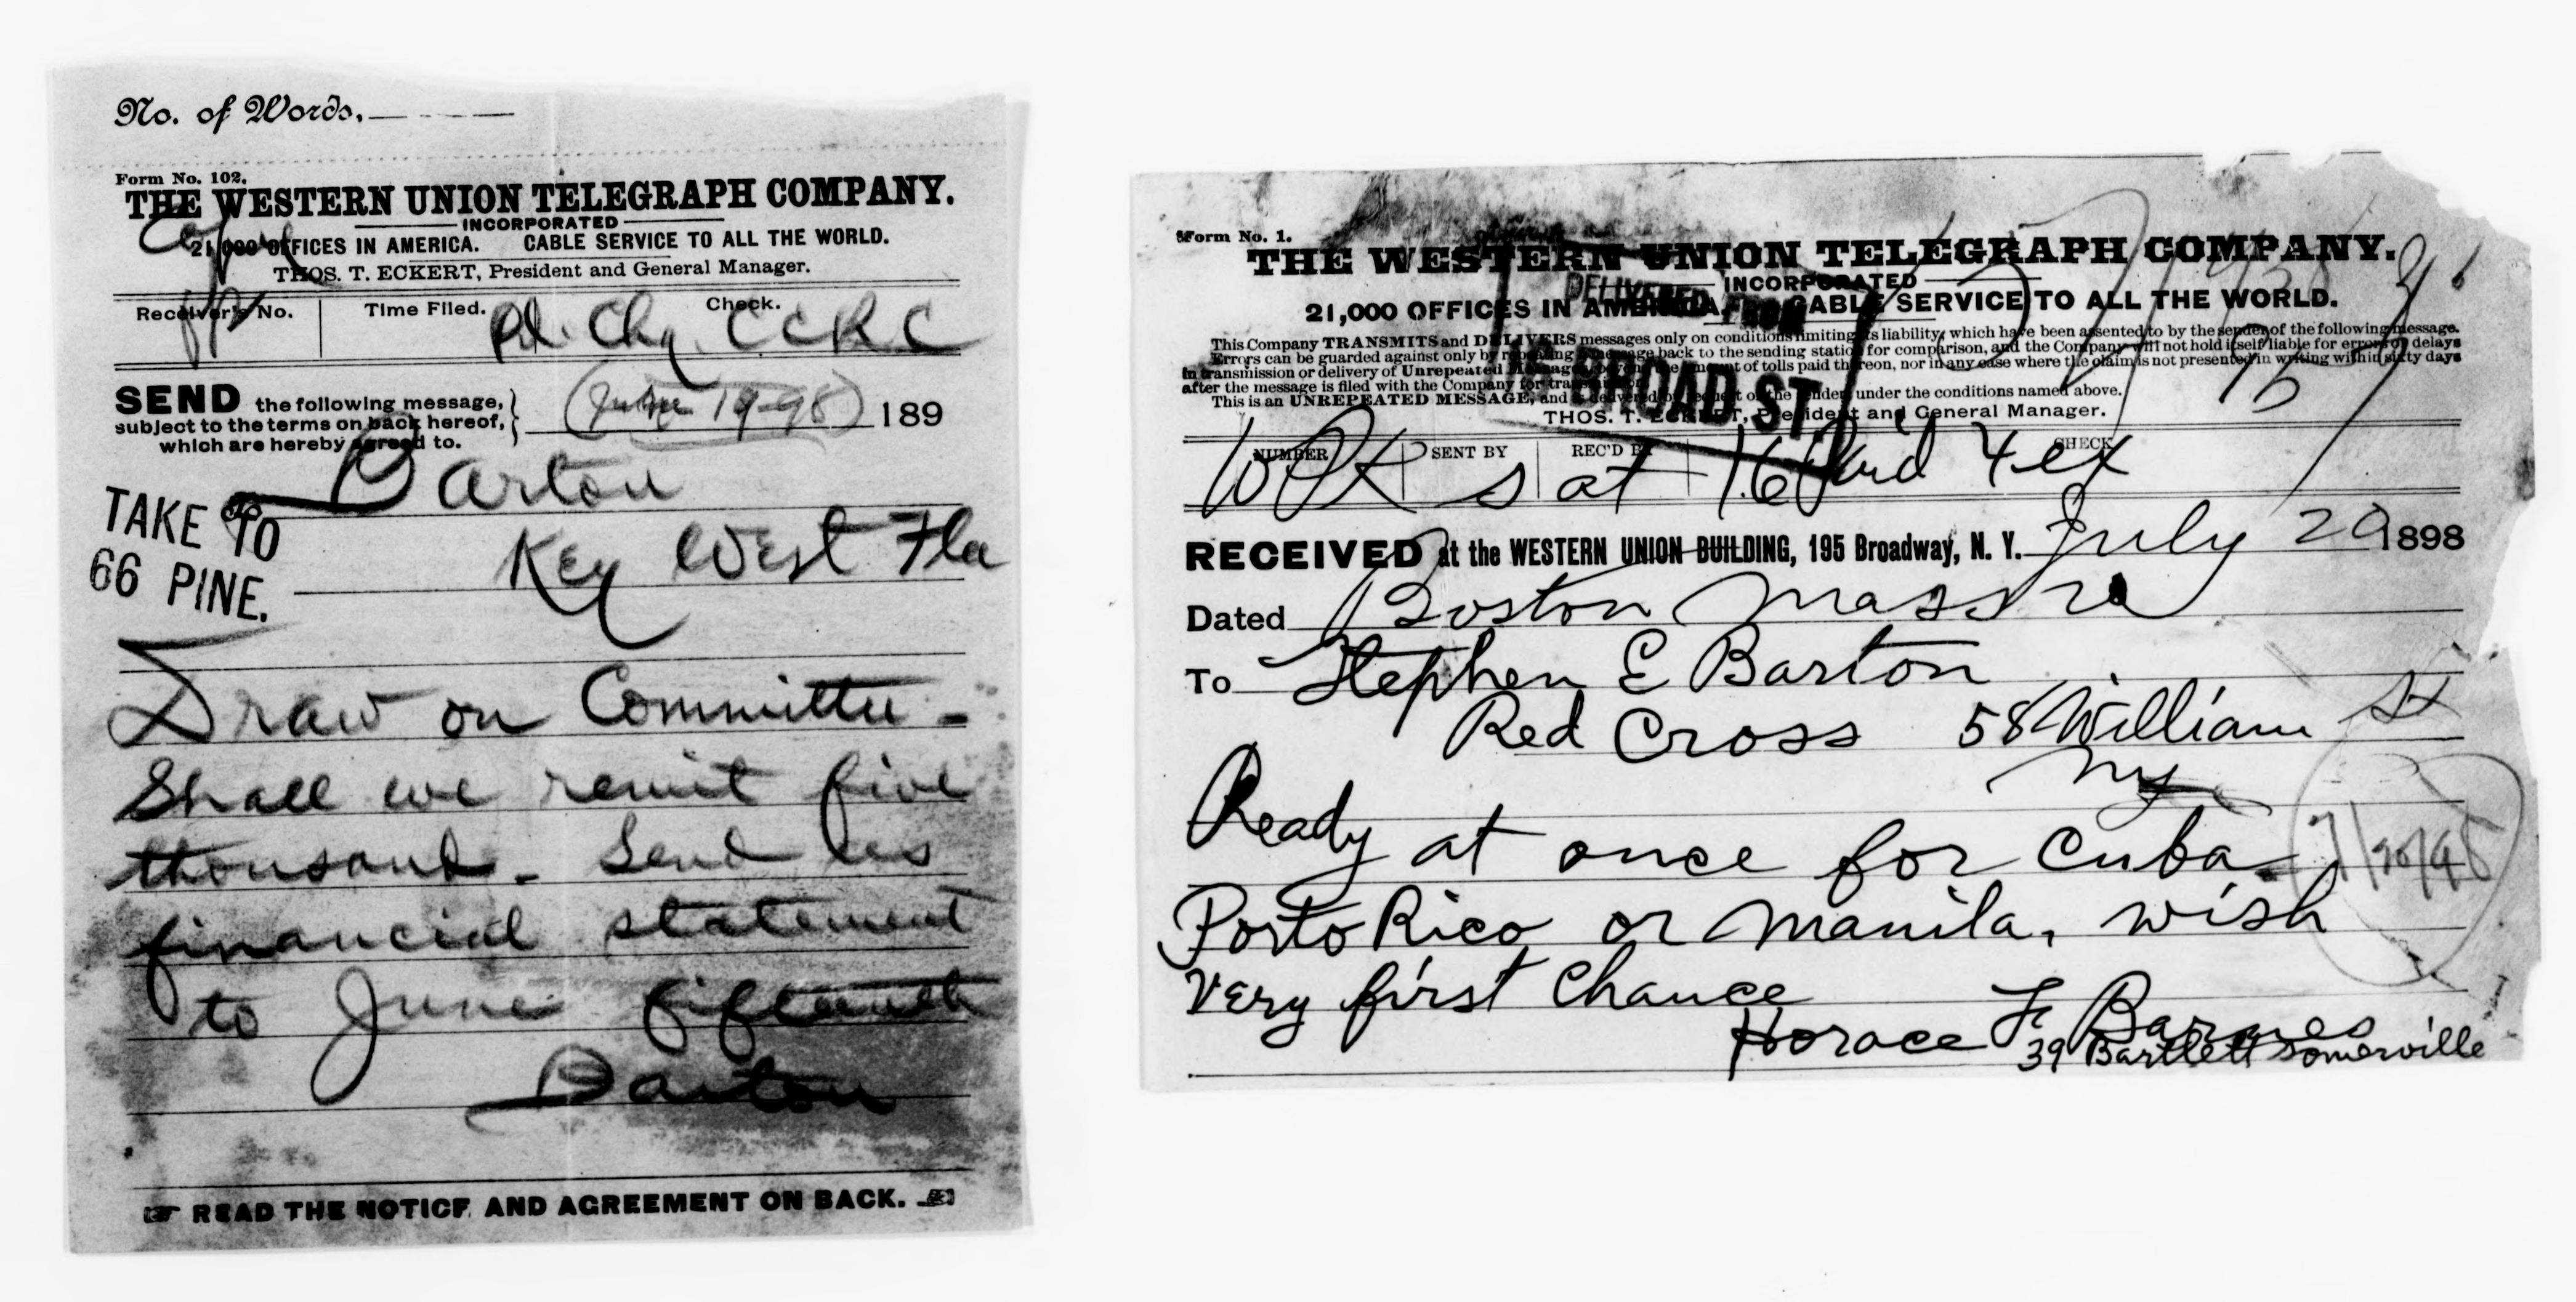 No. of Words.
Form No. 102.
THE WESTERN UNION TELEGRAPH COMPANY.
INCORPORATED
21,000 OFFICES IN AMERICA. CABLE SERVICE TO ALL THE WORLD.
Copy
THOS. T. ECKERT, President and General Manager.
Receiver's No. Time Filed. Check.
Pd. Chg. CCRC
SEND the following message,
subject to the terms on back hereof,
which are hereby agreed to.
June 19-98 189
Barton
TAKE TO
66 PINE.
Key West Fla
Draw on Committee -
Shall we remit five
thousand - Send us
financial statement
to June fifteenth
Barton
READ THE NOTICE AND AGREEMENT ON BACK.
Form No. 1.
THE WESTERN UNION TELEGRAPH COMPANY.
INCORPORATED
21,000 OFFICES IN AMERICA. CABLE SERVICE TO ALL THE WORLD.
DELIVERED
FROM
BROAD ST
This Company TRANSMITS and DELIVERS messages only on conditions limiting its liability, which have been assented to by the sender of the following message.
Errors can be guarded against only by repeating a message back to the sending station for comparison, and the Company will not hold itself liable for errors or delays
in transmission or delivery of Unrepeated Messages, beyond the amount of tolls paid thereon, nor in any case where the claim is not presented in writing within sixty days
after the message is filed with the Company for transmission.
This is an UNREPEATED MESSAGE, and is delivered by request of the sender, under the conditions named above.
THOS. T. ECKERT, President and General Manager.
NUMBER SENT BY REC'D BY CHECK
16 Paid 4 ex
RECEIVED at the WESTERN UNION BUILDING, 195 Broadway, N. Y. July 29 1898
Dated Boston Mass
To Stephen E Barton
Red Cross 58 William St
NY
Ready at once for Cuba
Porto Rico or Manila, wish
very first chance
Horace F Barnes
39 Bartlett Somerville